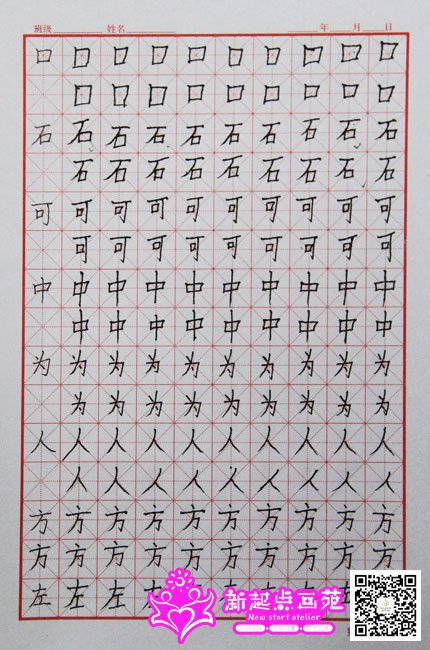 班级 姓名 年 月 日
口口口口口口口口口口
口口口口口口口口口
石石石石石石石石石石
石石石石石石石石石
可可可可可可可可可可
可可可可可可可可可
中中中中中中中中中中
中中中中中中中中中
为为为为为为为为为为
为为为为为为为为为
人人人人人人人人人人
人人人人人人人人人
方方方方方方方方方方
方方方方方方方方方方
左左左
新起点画苑
New start atelier